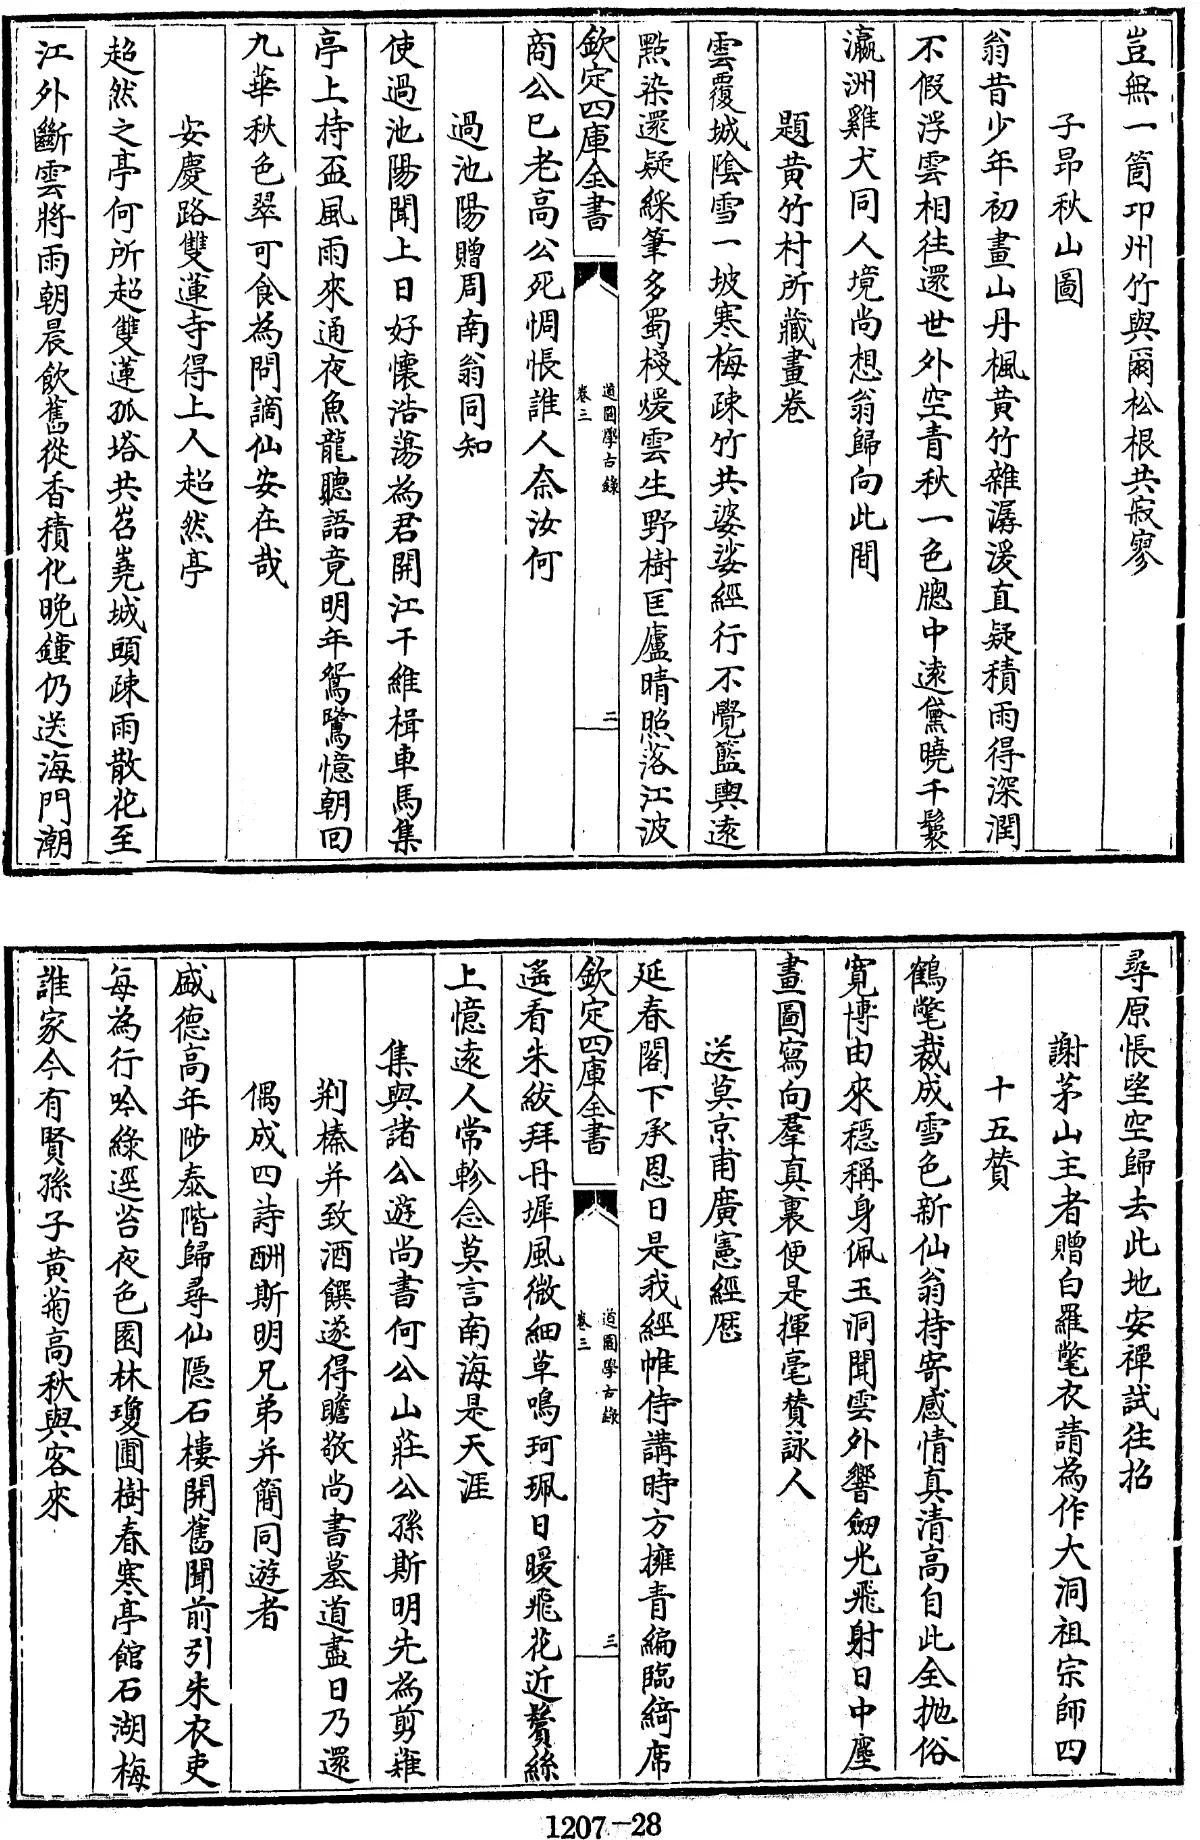 豈無一箇卭州竹與爾松根共寂寥
子昂秋山圖
翁昔少年初畫山丹楓黄竹雜潺湲直疑積雨得深潤
不假浮雲相往還世外空青秋一色牕中逺黛曉千鬟
瀛洲雞犬同人境尚想翁歸向此間
題黄竹村所藏畫卷
雲覆城隂雪一坡寒梅疎竹共婆娑經行不覺籃輿逺
點染還疑綵筆多蜀棧煖雲生野樹匡廬晴照落江波
欽定四庫全書
道園學古錄
卷三
二
商公已老高公死惆悵誰人奈汝何
過池陽贈周南翁同知
使過池陽聞上日好懷浩蕩為君開江干維楫車馬集
亭上持盃風雨來通夜魚龍聽語竟明年鴛鷺憶朝回
九華秋色翠可食為問謫仙安在哉
安慶路雙蓮寺得上人超然亭
超然之亭何所超雙蓮孤塔共岧嶤城頭疎雨散花至
江外斷雲將雨朝晨飲舊從香積化晚鐘仍送海門潮
尋原悵望空歸去此地安禪試往招
謝茅山主者贈白羅氅衣請為作大洞祖宗師四
十五贊
鶴氅裁成雪色新仙翁持寄感情真清高自此全抛俗
寛博由來穩稱身佩玉洞聞雲外響劒光飛射日中塵
畫圖寫向羣真裏便是揮毫贊詠人
送莫京甫廣憲經歴
延春閣下承恩日是我經帷侍講時方擁青編臨綺席
欽定四庫全書
道園學古錄
卷三
三
遥看朱紱拜丹墀風微細草鳴珂珮日暖飛花近鬢絲
上憶逺人常軫念莫言南海是天涯
集與諸公遊尚書何公山莊公孫斯明先為剪薙
荆榛并致酒饌遂得瞻敬尚書墓道盡日乃還
偶成四詩酬斯明兄弟并簡同遊者
盛德高年陟泰階歸尋仙隠石樓開舊聞前引朱衣吏
每為行吟緑逕苔夜色園林瓊圃樹春寒亭館石湖梅
誰家今有賢孫子黄菊高秋與客來
1207-28